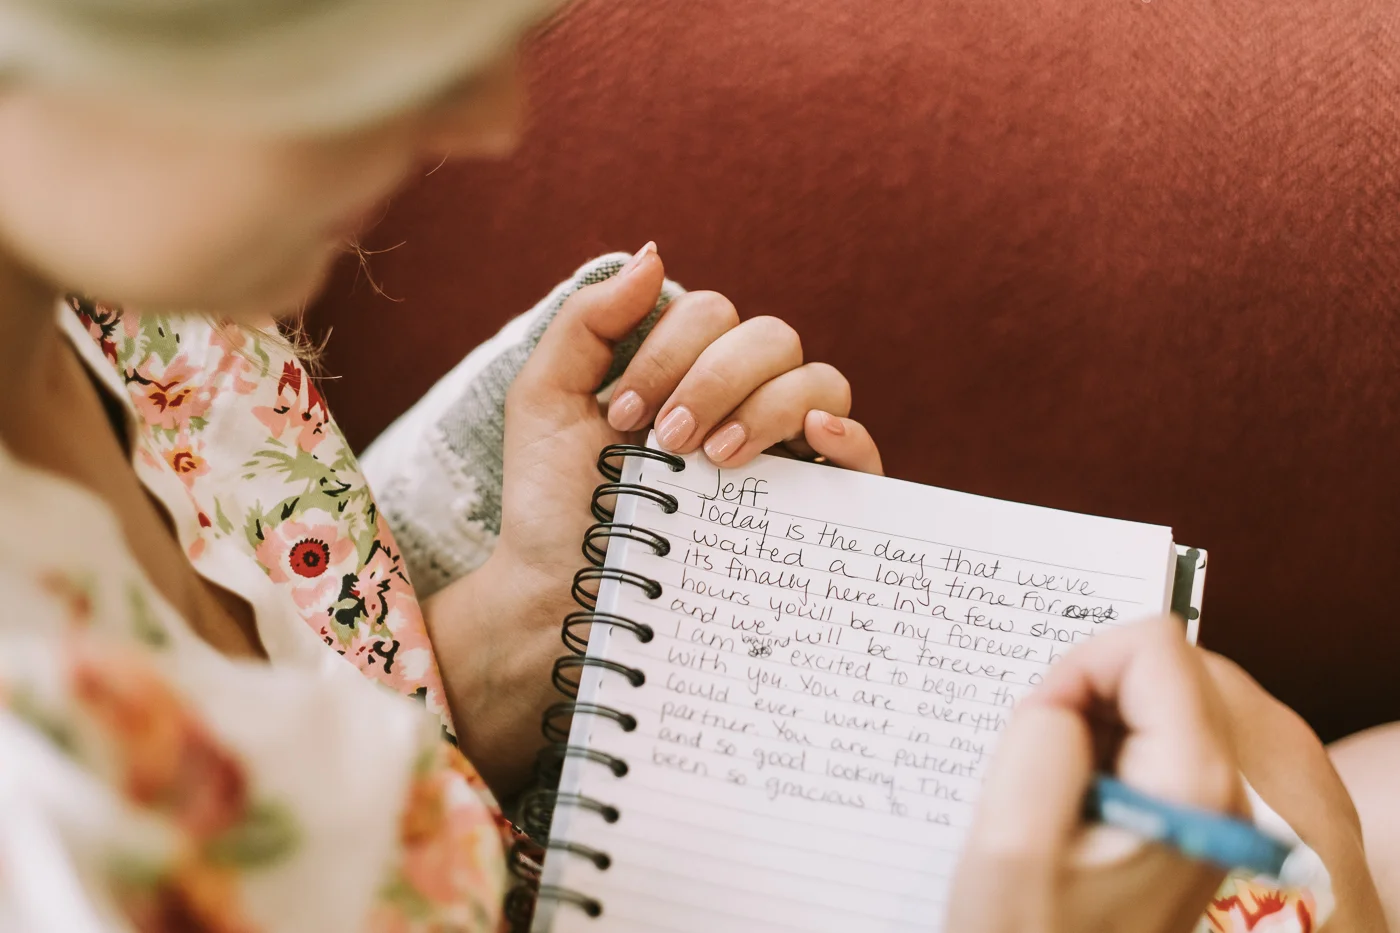 Jeff,
Today is the day that we've
waited a long time for.
its finally here. In a few short
hours you'll be my forever
and we will be forever
I am excited to begin
with you. You are
could ever want in my
partner. You are patient
and so good looking. The
been so gracious to us